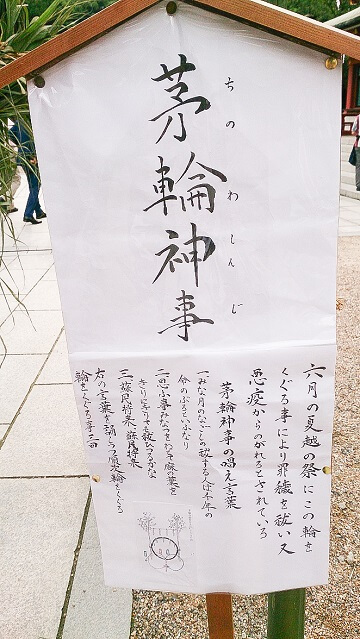 茅輪神事
ちのわしんじ
六月の夏越の祭にこの輪を
くぐる事により罪穢を祓い又
悪疫からのがれるとされている
茅輪神事の唱え言葉
一 みな月のなごしの祓する人は千年の
命のぶるといふなり
二 思ふ事みなつきねとて麻の葉を
きりにきりても祓ひつるかな
三 蘇民将来、蘇民将来
右の言葉を誦しつつ順次輪をくぐる
輪をくぐる事三回